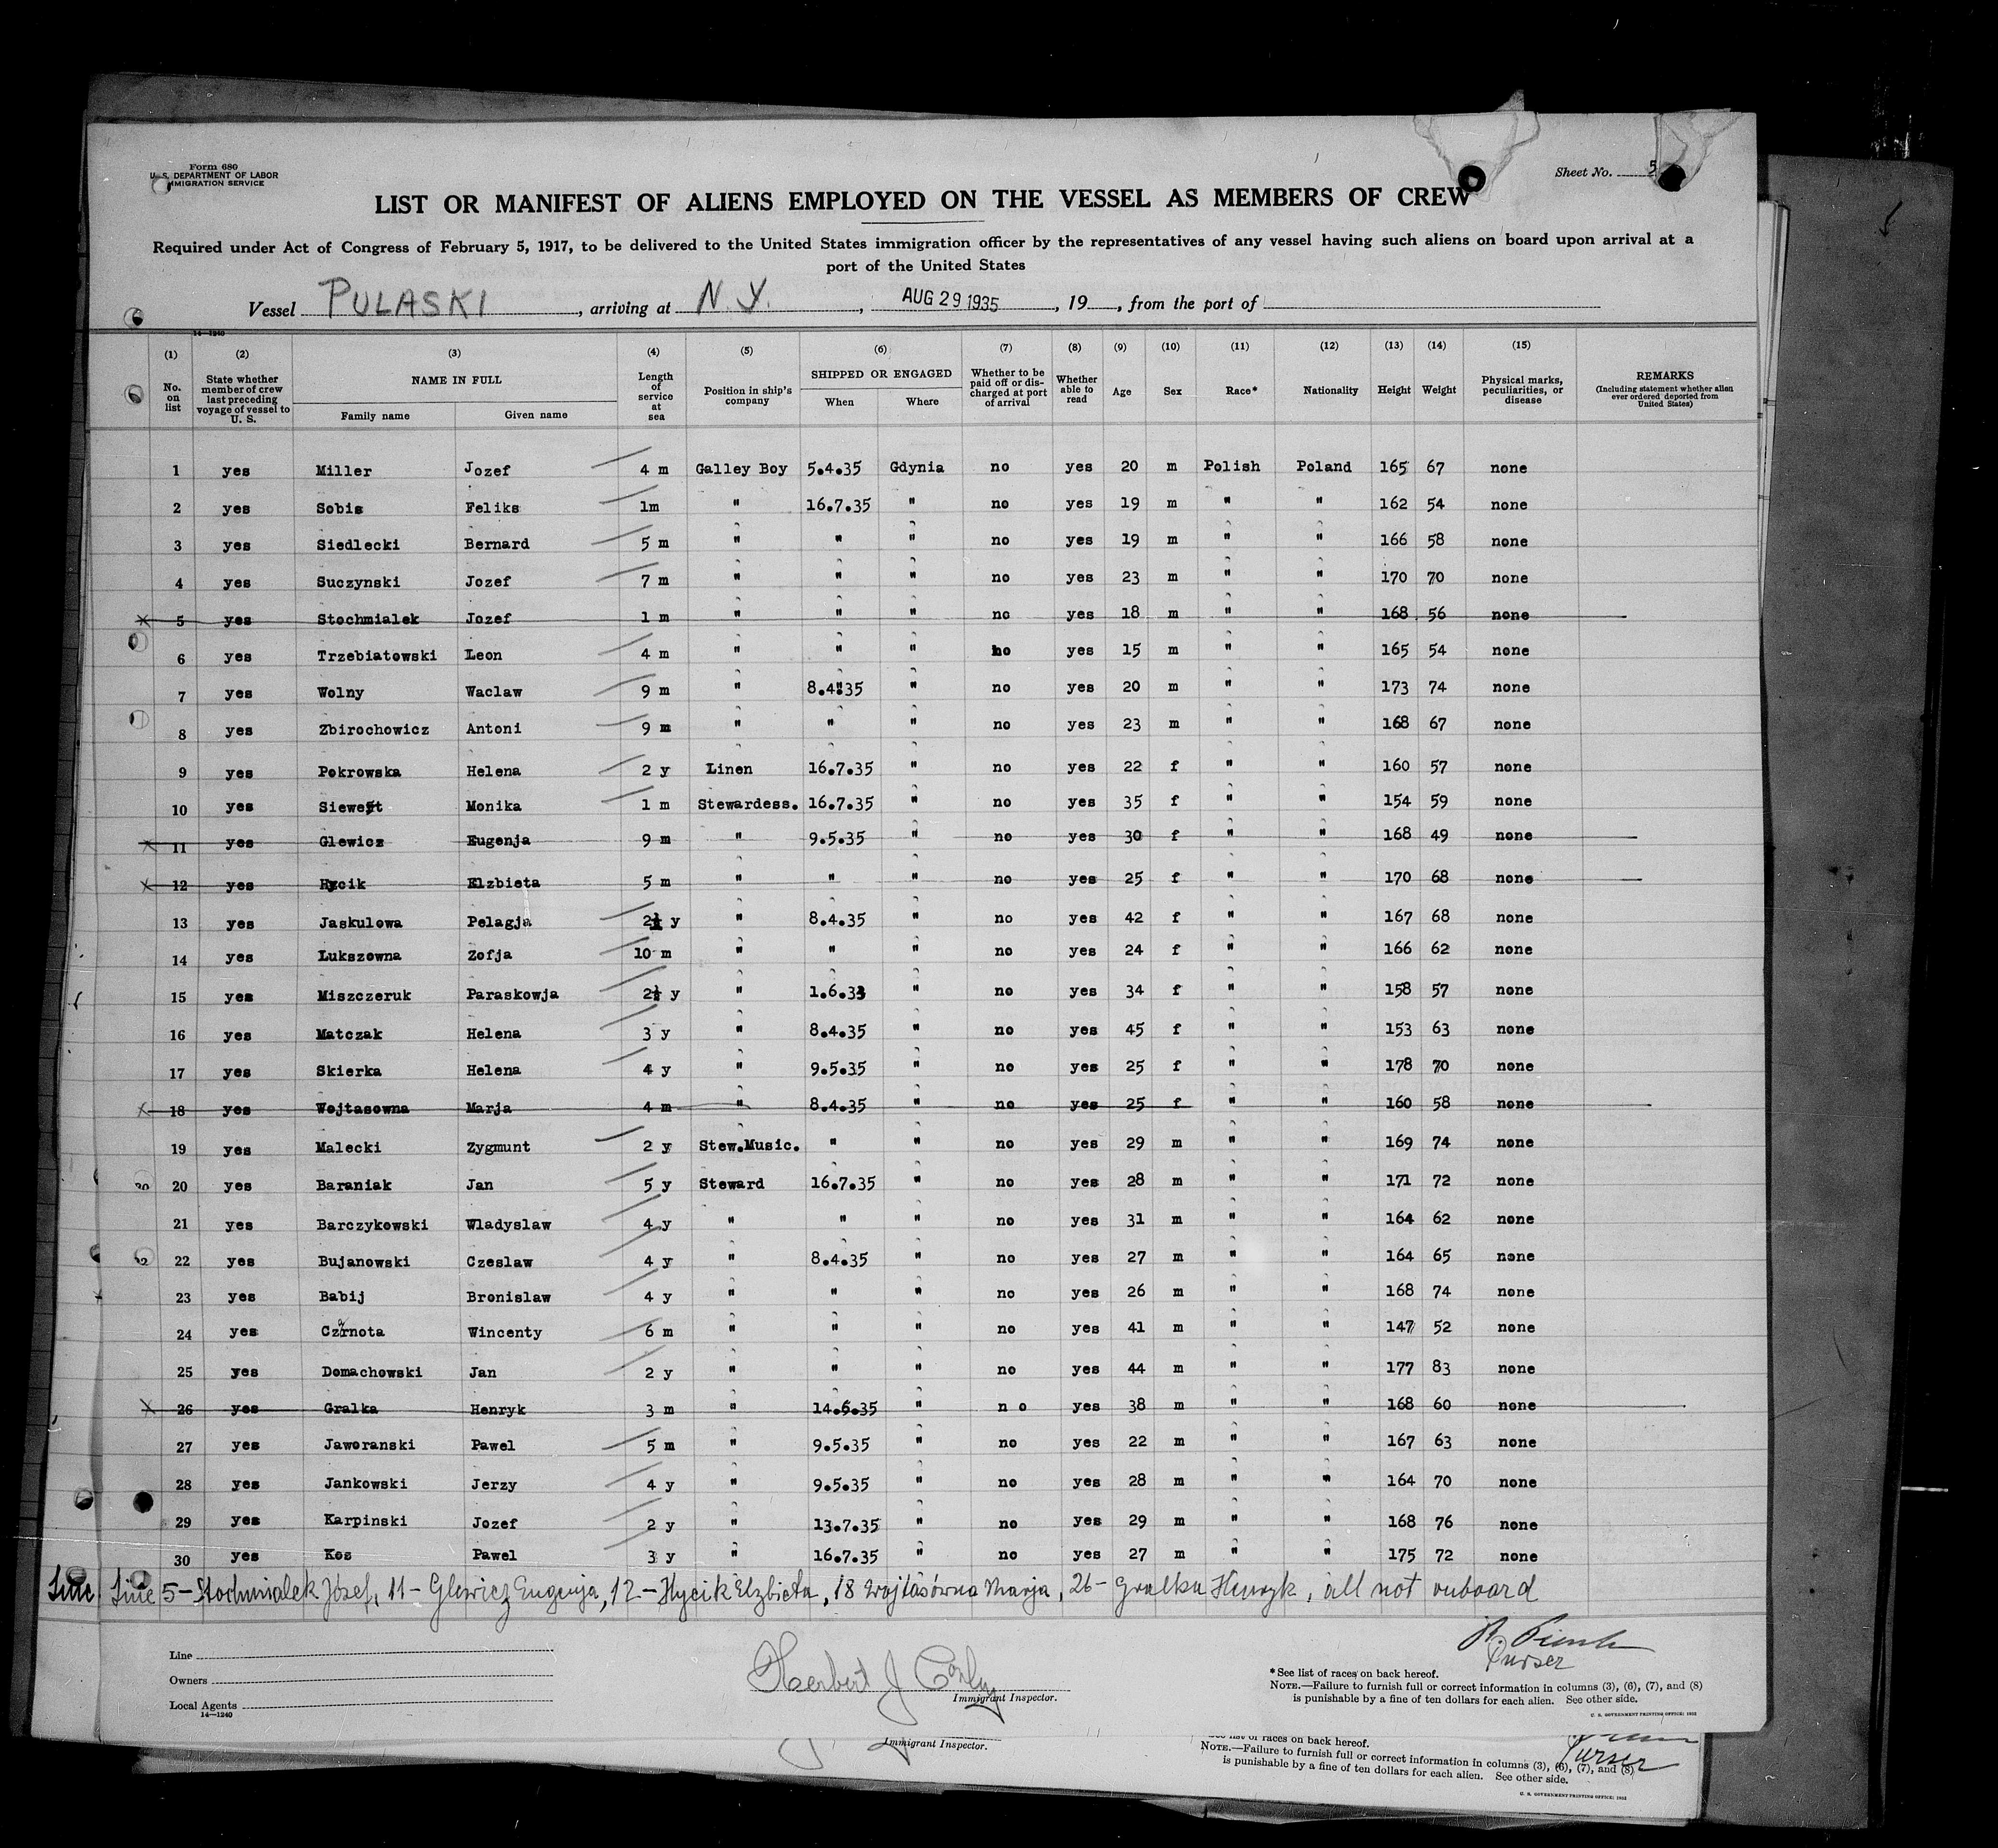 Form 680
U. S. DEPARTMENT OF LABOR
IMMIGRATION SERVICE
Sheet No. 5
LIST OR MANIFEST OF ALIENS EMPLOYED ON THE VESSEL AS MEMBERS OF CREW
Required under Act of Congress of February 5, 1917, to be delivered to the United States immigration officer by the representatives of any vessel having such aliens on board upon arrival at a
port of the United States
Vessel PULASKI, arriving at N. Y., AUG 29 1935, 19, from the port of
14—1240
(1) (2) (3) (4) (5) (6) (7) (8) (9) (10) (11) (12) (13) (14) (15)
No. on list | State whether member of crew last preceding voyage of vessel to U. S. | NAME IN FULL Family name Given name | Length of service at sea | Position in ship's company | SHIPPED OR ENGAGED When Where | Whether to be paid off or discharged at port of arrival | Whether able to read | Age | Sex | Race* | Nationality | Height | Weight | Physical marks, peculiarities, or disease | REMARKS (Including statement whether alien ever ordered deported from United States)
1 yes Miller Jozef 4 m Galley Boy 5.4.35 Gdynia no yes 20 m Polish Poland 165 67 none
2 yes Sobis Feliks 1m " 16.7.35 " no yes 19 m " " 162 54 none
3 yes Siedlecki Bernard 5 m " " " no yes 19 m " " 166 58 none
4 yes Suczynski Jozef 7 m " " " no yes 23 m " " 170 70 none
5 yes Stochmialek Jozef 1 m " " " no yes 18 m " " 168 56 none
6 yes Trzebiatowski Leon 4 m " " " no yes 15 m " " 165 54 none
7 yes Wolny Waclaw 9 m " 8.4.35 " no yes 20 m " " 173 74 none
8 yes Zbirochowicz Antoni 9 m " " " no yes 23 m " " 168 67 none
9 yes Pokrowska Helena 2 y Linen 16.7.35 " no yes 22 f " " 160 57 none
10 yes Siewert Monika 1 m Stewardess. 16.7.35 " no yes 35 f " " 154 59 none
11 yes Glewicz Eugenja 9 m " 9.5.35 " no yes 30 f " " 168 49 none
12 yes Hycik Elzbieta 5 m " " " no yes 25 f " " 170 68 none
13 yes Jaskulowa Pelagja 2½ y " 8.4.35 " no yes 42 f " " 167 68 none
14 yes Lukszowna Zofja 10 m " " " no yes 24 f " " 166 62 none
15 yes Miszczeruk Paraskowja 2½ y " 1.6.33 " no yes 34 f " " 158 57 none
16 yes Matczak Helena 3 y " 8.4.35 " no yes 45 f " " 153 63 none
17 yes Skierka Helena 4 y " 9.5.35 " no yes 25 f " " 178 70 none
18 yes Wojtasowna Marja 4 m " 8.4.35 " no yes 25 f " " 160 58 none
19 yes Malecki Zygmunt 2 y Stew.Music. " " no yes 29 m " " 169 74 none
20 yes Baraniak Jan 5 y Steward 16.7.35 " no yes 28 m " " 171 72 none
21 yes Barczykowski Wladyslaw 4 y " " " no yes 31 m " " 164 62 none
22 yes Bujanowski Czeslaw 4 y " 8.4.35 " no yes 27 m " " 164 65 none
23 yes Babij Bronislaw 4 y " " " no yes 26 m " " 168 74 none
24 yes Czarnota Wincenty 6 m " " " no yes 41 m " " 147 52 none
25 yes Domachowski Jan 2 y " " " no yes 44 m " " 177 83 none
26 yes Gralka Henryk 3 m " 14.6.35 " n o yes 38 m " " 168 60 none
27 yes Jaworanski Pawel 5 m " 9.5.35 " no yes 22 m " " 167 63 none
28 yes Jankowski Jerzy 4 y " 9.5.35 " no yes 28 m " " 164 70 none
29 yes Karpinski Jozef 2 y " 13.7.35 " no yes 29 m " " 168 76 none
30 yes Kos Pawel 3 y " 16.7.35 " no yes 27 m " " 175 72 none
Line Line 5 – Stochmialek Józef, 11 – Glewicz Eugenja, 12 – Hycik Elzbieta, 18 Wojtasówna Marja, 26 – Gralka Henryk, all not onboard
Purser
Line
Owners
Local Agents
14—1240
Herbert J Conley
Immigrant Inspector.
*See list of races on back hereof.
NOTE.—Failure to furnish full or correct information in columns (3), (6), (7), and (8)
is punishable by a fine of ten dollars for each alien. See other side.
U. S. GOVERNMENT PRINTING OFFICE: 1932
Immigrant Inspector.
list of races on back hereof.
Purser
NOTE.—Failure to furnish full or correct information in columns (3), (6), (7), and (8)
is punishable by a fine of ten dollars for each alien. See other side.
U. S. GOVERNMENT PRINTING OFFICE: 1932